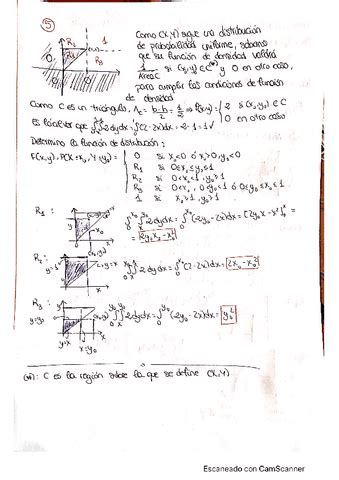 ⑤
R₂ 1
R₁
R₃
0
Como (X,Y) sigue una distribución
de probabilidad uniforme, sabemos
que su función de densidad valdrá
1/Área C si (x,y) ∈ C(*) y 0 en otro caso,
para cumplir las condiciones de función
de densidad
Como C es un triángulo, A_c = b·h/2 = 1/2 ⇒ f(x,y) = { 2 si (x,y) ∈ C
0 en otro caso
Es fácil ver que ∫∫ 2dydx = ∫(2-2x)dx = 2-1 = 1 ✓
Determino la función de distribución:
F(x,y) = P(X≤x₀, Y≤y₀) =
0 si x₀<0 ó x₀>0, y₀<0
R₁ si 0≤x₀≤y₀≤1
R₂ si 0<x₀<1, y₀>1
R₃ si
1 si x₀>1, y₀>1
R₁:
∫∫ 2dydx = ∫(2y₀-2x)dx = [2y₀x - x²] =
= 2y₀x₀ - x₀²
R₂:
y=x
x=x₀
∫∫ 2dydx = ∫(2-2x)dx = 2x₀ - x₀²
R₃:
y=y₀
∫∫ 2dydx = ∫(2y₀-2x)dx = y₀²
y=x x=x₀
(*): C es la región sobre la que se define (X,Y)
Escaneado con CamScanner